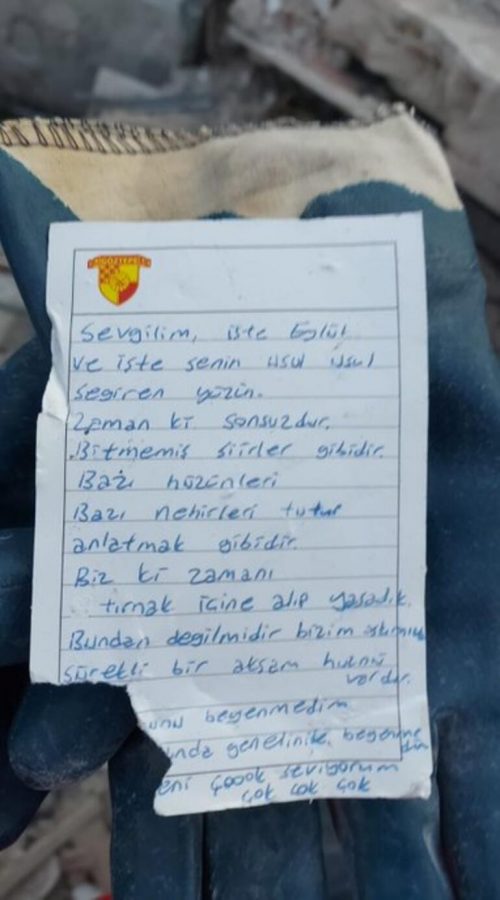 GÖZTEPE
Sevgilim, işte Eylül
ve işte senin usul usul
seğiren yüzün.
Zaman ki sonsuzdur.
Bitmemiş şiirler gibidir.
Bazı hüzünleri
Bazı nehirleri tutup
anlatmak gibidir.
Biz ki zamanı
tırnak içine alıp yaşadık.
Bundan değilmidir bizim aşkımız
sürekli bir akşam hüznü
vardır.
unu beğenmedim
ında genelinike beğenme
dim
eni çoook seviyorum
çok çok çok